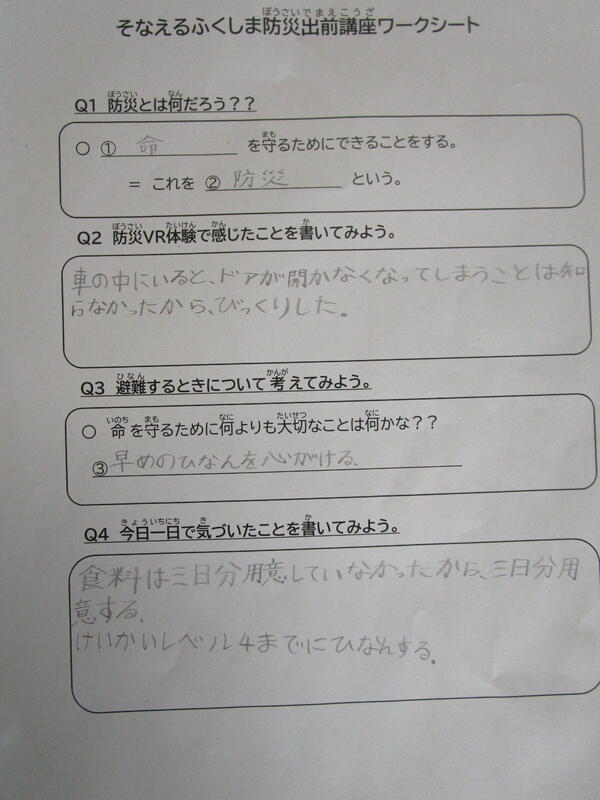 そなえるふくしま防災出前講座ワークシート
Q1 防災とは何だろう？？
○ ① 命 を守るためにできることをする。
＝ これを ② 防災 という。
Q2 防災VR体験で感じたことを書いてみよう。
車の中にいると、ドアが開かなくなってしまうことは知
らなかったから、びっくりした。
Q3 避難するときについて考えてみよう。
○ 命を守るために何よりも大切なことは何かな？？
③早めのひなんを心がける.
Q4 今日一日で気づいたことを書いてみよう。
食料は三日分用意していなかったから、三日分用
意する.
けいかいレベル4までにひなんする.